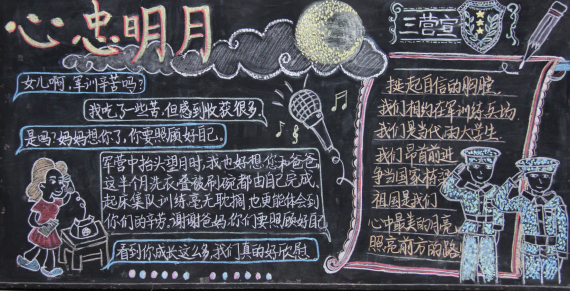 心忠明月
三营宣
女儿啊,军训辛苦吗?
我吃了一些苦,但感到收获很多
是吗?妈妈想你了,你要照顾好自己。
军营中抬头望月时,我也好想您和爸爸
这半个月洗衣叠被刷碗都由自己完成、
起床集队训练毫无耽搁,也更能体会到
你们的辛劳,谢谢爸妈,你们要照顾好自己
看到你成长这么多,我们真的好欣慰
挺起自信的胸膛
我们相约在军训练兵场
我们是当代大学生
我们昂首前进
争当国家栋梁
祖国是我们
心中最美的月亮
照亮前方的路